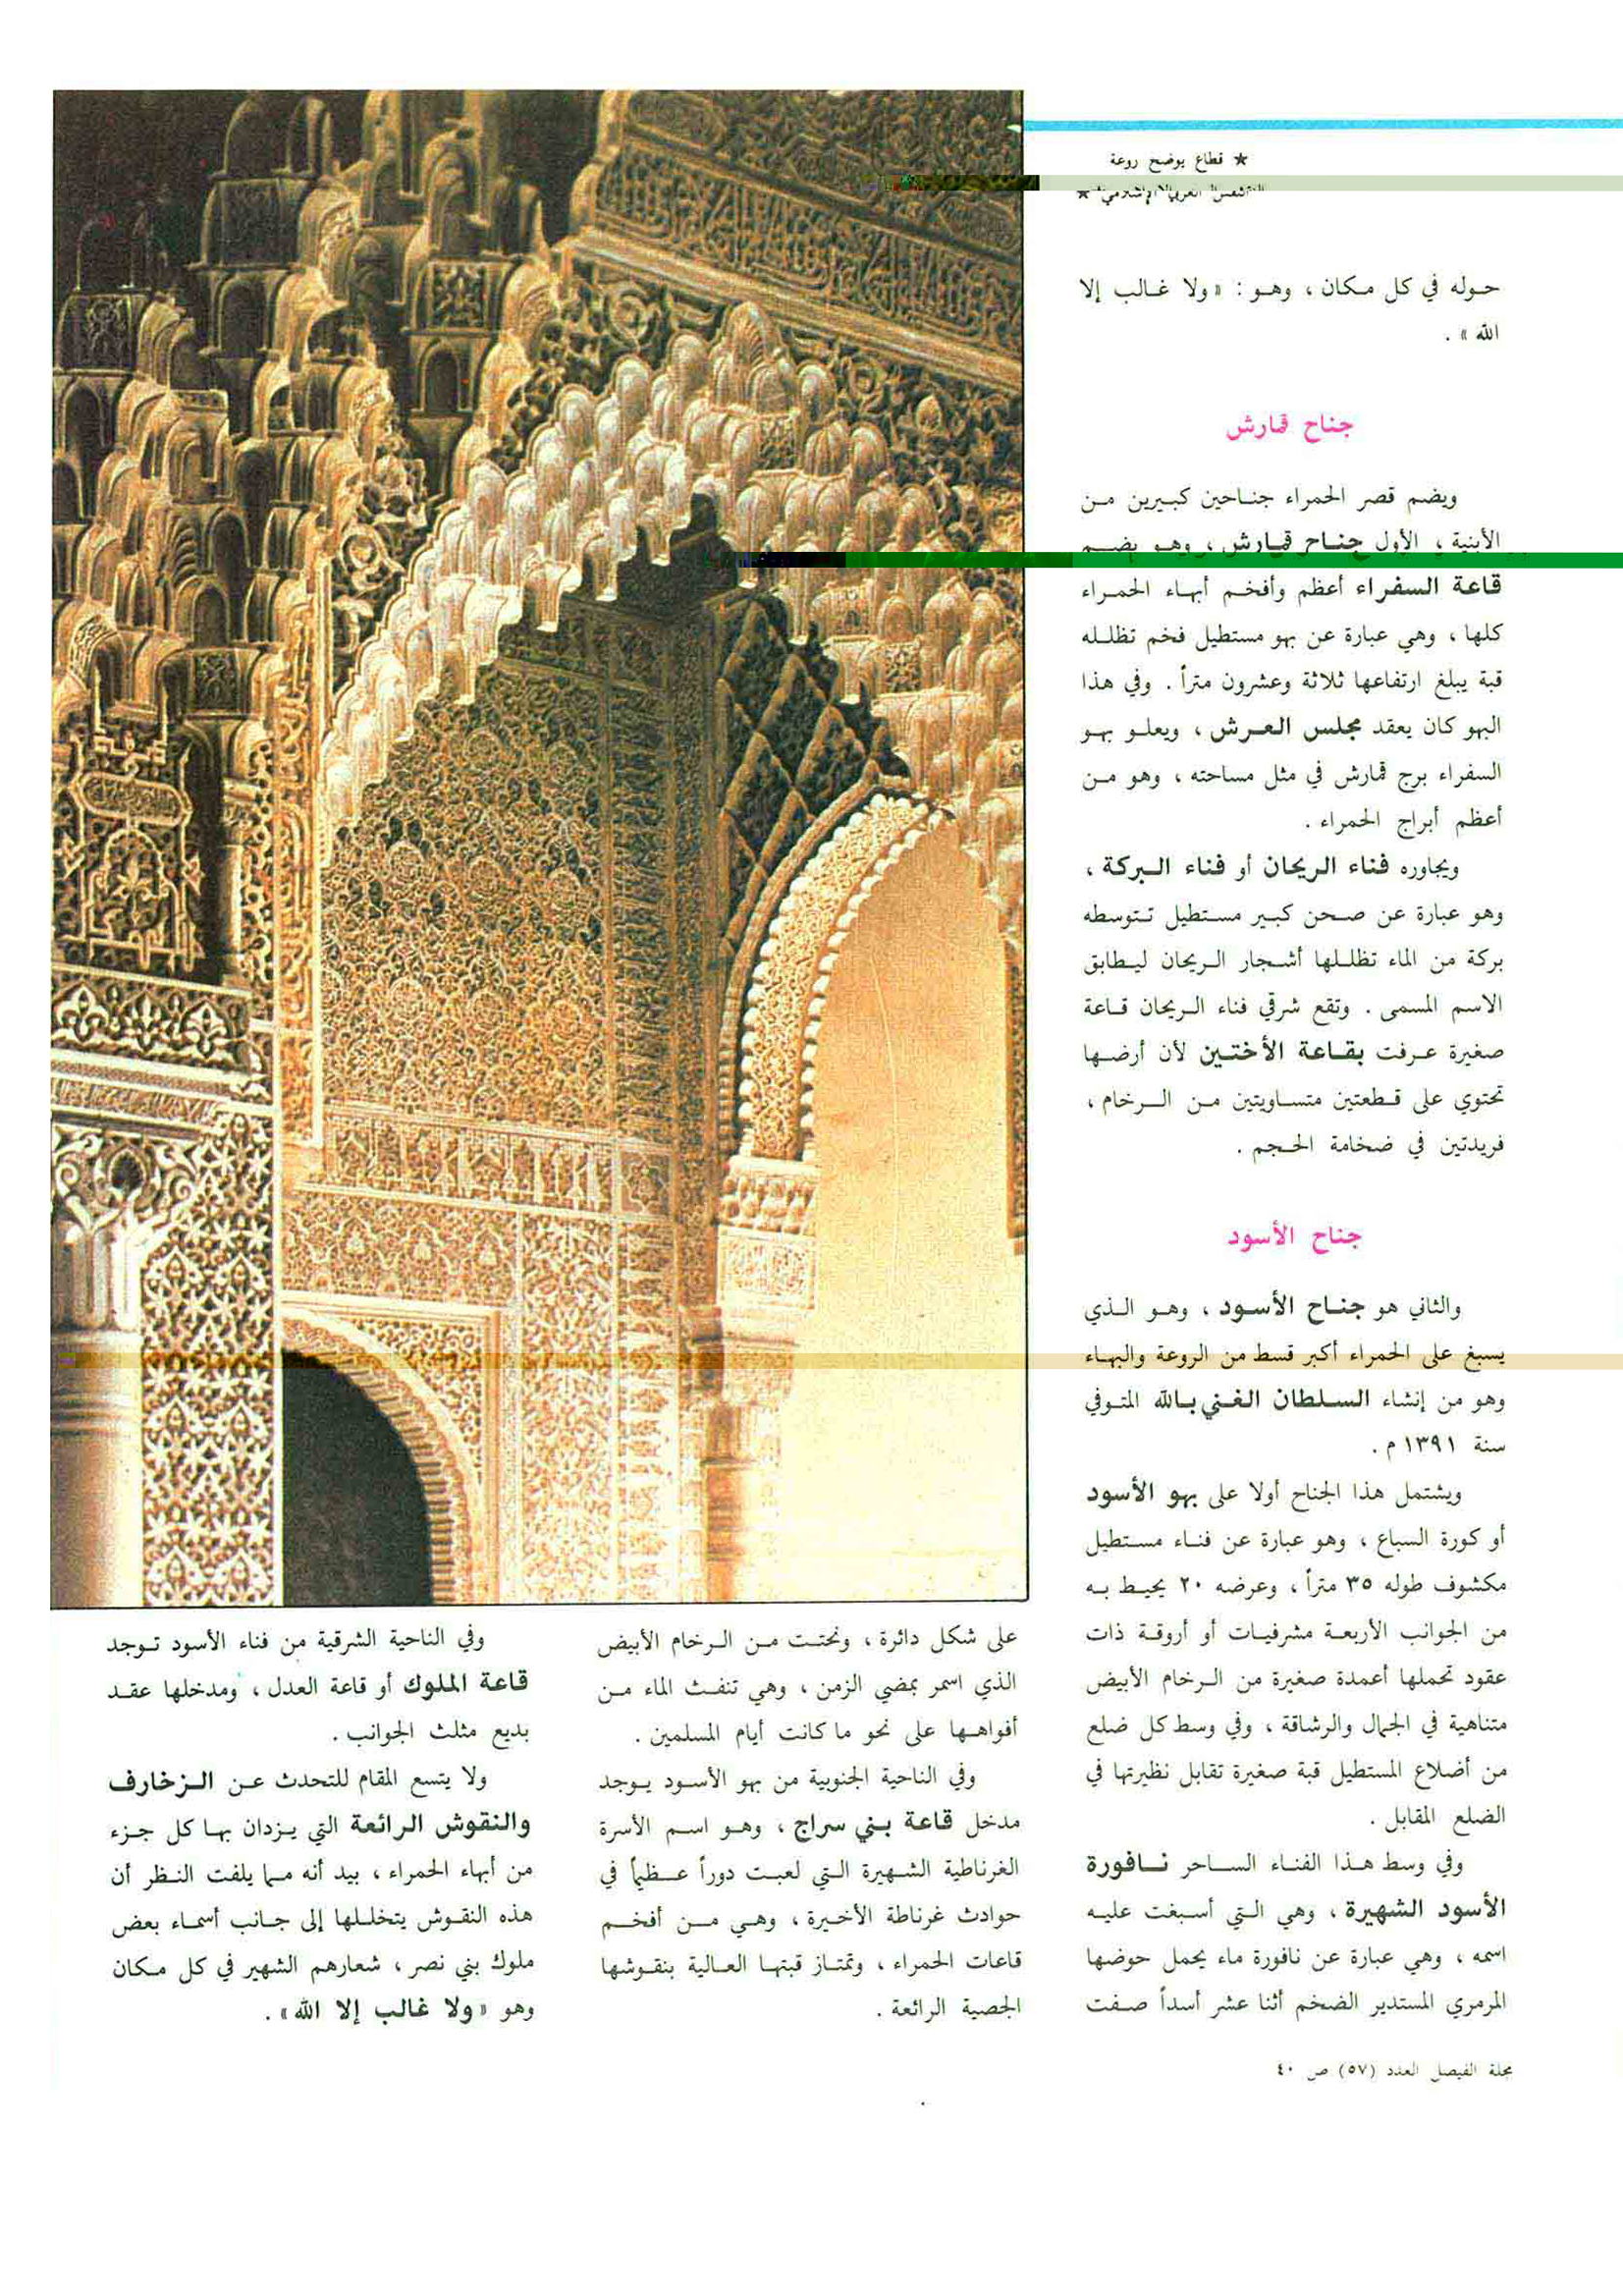 ★ قطاع يوضح روعة
النقش العربي الإسلامي ★
حوله في كل مكان ، وهو : « ولا غالب إلا
الله » .
جناح قمارش
ويضم قصر الحمراء جناحين كبيرين من
الأبنية ، الأول جناح قمارش ، وهو يضم
قاعة السفراء أعظم وأفخم أبهاء الحمراء
كلها ، وهي عبارة عن بهو مستطيل فخم تظلله
قبة يبلغ ارتفاعها ثلاثة وعشرون متراً . وفي هذا
البهو كان يعقد مجلس العرش ، ويعلو بهو
السفراء برج قمارش في مثل مساحته ، وهو من
أعظم أبراج الحمراء .
ويجاوره فناء الريحان أو فناء البركة ،
وهو عبارة عن صحن كبير مستطيل تتوسطه
بركة من الماء تظللها أشجار الريحان ليطابق
الاسم المسمى . وتقع شرقي فناء الريحان قاعة
صغيرة عرفت بقاعة الأختين لأن أرضها
تحتوي على قطعتين متساويتين من الرخام ،
فريدتين في ضخامة الحجم .
جناح الأسود
والثاني هو جناح الأسود ، وهو الذي
يسبغ على الحمراء أكبر قسط من الروعة والبهاء
وهو من إنشاء السلطان الغني بالله المتوفي
سنة ١٣٩١ م .
ويشتمل هذا الجناح أولا على بهو الأسود
أو كورة السباع ، وهو عبارة عن فناء مستطيل
مكشوف طوله ٣٥ متراً ، وعرضه ٢٠ يحيط به
من الجوانب الأربعة مشرفيات أو أروقة ذات
عقود تحملها أعمدة صغيرة من الرخام الأبيض
متناهية في الجمال والرشاقة ، وفي وسط كل ضلع
من أضلاع المستطيل قبة صغيرة تقابل نظيرتها في
الضلع المقابل .
وفي وسط هذا الفناء الساحر نافورة
الأسود الشهيرة ، وهي التي أسبغت عليه
اسمه ، وهي عبارة عن نافورة ماء يحمل حوضها
المرمري المستدير الضخم أثنا عشر أسداً صفت
على شكل دائرة ، ونحتت من الرخام الأبيض
الذي اسمر بمضي الزمن ، وهي تنفث الماء من
أفواهها على نحو ما كانت أيام المسلمين .
وفي الناحية الجنوبية من بهو الأسود يوجد
مدخل قاعة بني سراج ، وهو اسم الأسرة
الغرناطية الشهيرة التي لعبت دوراً عظيماً في
حوادث غرناطة الأخيرة ، وهي من أفخم
قاعات الحمراء ، وتمتاز قبتها العالية بنقوشها
الجصية الرائعة .
وفي الناحية الشرقية من فناء الأسود توجد
قاعة الملوك أو قاعة العدل ، ومدخلها عقد
بديع مثلث الجوانب .
ولا يتسع المقام للتحدث عن الزخارف
والنقوش الرائعة التي يزدان بها كل جزء
من أبهاء الحمراء ، بيد أنه مما يلفت النظر أن
هذه النقوش يتخللها إلى جانب أسماء بعض
ملوك بني نصر ، شعارهم الشهير في كل مكان
وهو « ولا غالب إلا الله » .
مجلة الفيصل العدد (٥٧) ص ٤٠